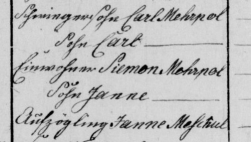 Schwiegersohn Carl Mehrpol
Sohn Carl
Einwohner Siemon Mehrpol
Sohn Janne
Aufzögling Janne